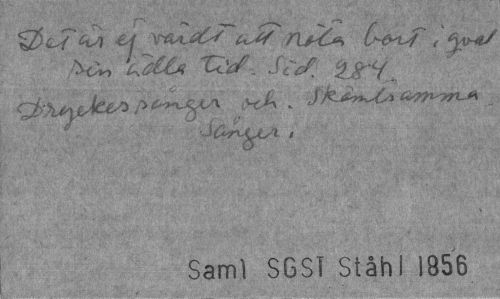 Det är ej värdt att nöta bort i qval
sin ädla tid. Sid. 284.
Dryckessånger och. Skämtsamma
Sånger.
Saml SGST Ståhl 1856